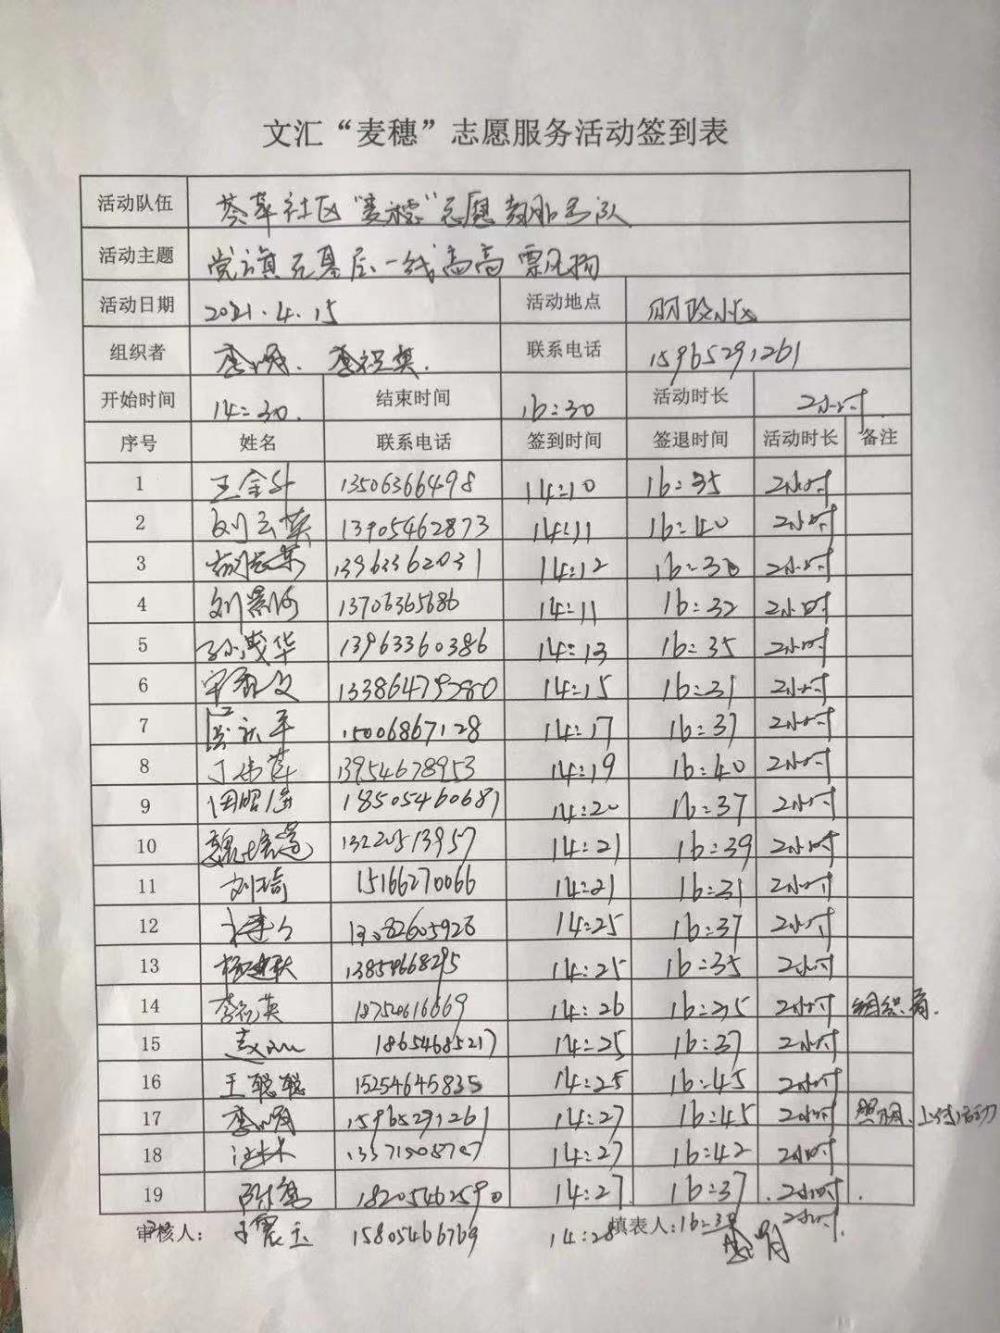 文汇“麦穗”志愿服务活动签到表
活动队伍 荟萃社区“麦穗”志愿服务队
活动主题 党旗在基层一线高高飘扬
活动日期 2021.4.15 活动地点
组织者 李明. 李祝英. 联系电话 15965291261
开始时间 14:30. 结束时间 16:30 活动时长 2小时.
序号 姓名 联系电话 签到时间 签退时间 活动时长 备注
1 王金升 13506366498 14:10 16:35 2小时
2 刘云英 13905462873 14:11 16:40 2小时
3 13963362031 14:12 2小时
4 刘景河 13706365686 14:11 16:32 2小时
5 孙茂华 13963360386 14:13 16:35 2小时
6 14:15 16:31 2小时
7 15006867128 14:17 16:37 2小时
8 13954678953 14:19 16:40 2小时
9 18505460687 14:20 16:37 2小时
10 13220513957 14:21 16:39 2小时
11 刘琦 15166270066 14:21 16:31 2小时
12 14:25 16:37 2小时
13 13854668295 14:25 16:35 2小时
14 李祝英 14:26 16:35 2小时 组织者.
15 18654685217 14:25 16:37 2小时
16 王聪聪 15254645835 14:25 16:45 2小时
17 李明 15965291261 14:27 16:45 2小时 照相、上传活动
18 14:27 16:42 2小时
19 18205462590 14:27. 16:37. 2小时.
审核人： 王震玉 15805466769 14:28 填表人: 2小时.
李明